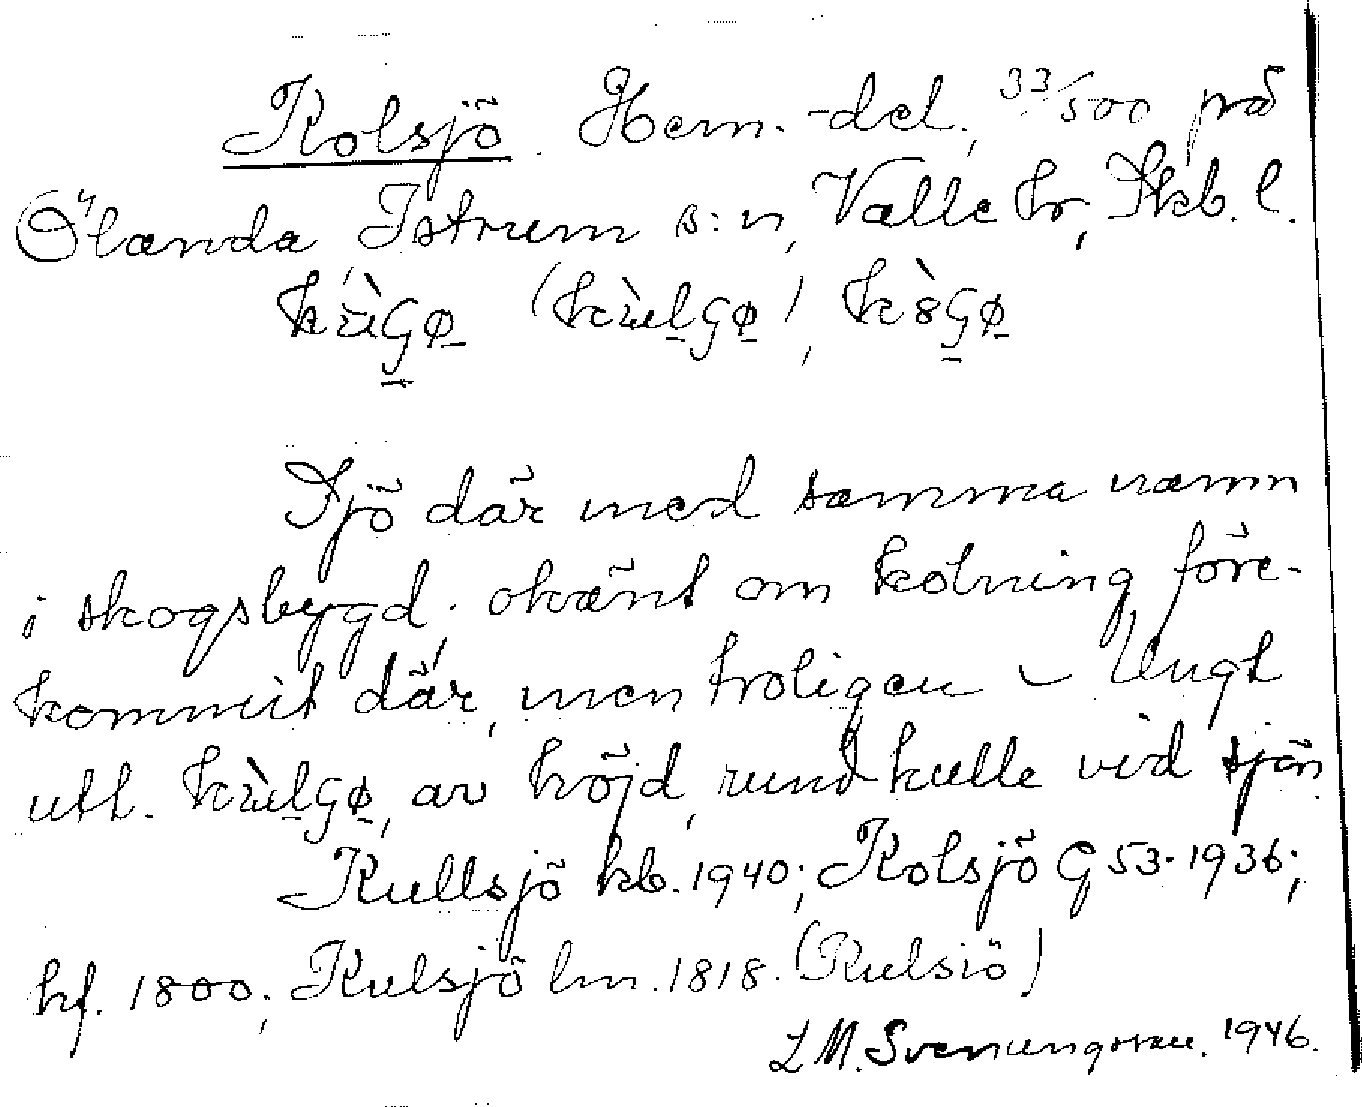 Kolsjö. Hem.-del, 33/500 på
Ölanda, Istrum s:n, Valle hr, Skb. l.
kùGø (kùlGø), kòGø
Sjö där med samma namn
i skogsbygd; okänt om kolning före-
kommit där, men troligen – Ungt
utt. kùlGø, av höjd, rund kulle vid sjön.
Kullsjö kb. 1940; Kolsjö G 53. 1936;
hf. 1800; Kulsjö lm. 1818. (Kulsiö)
L M. Svenungsson. 1946.